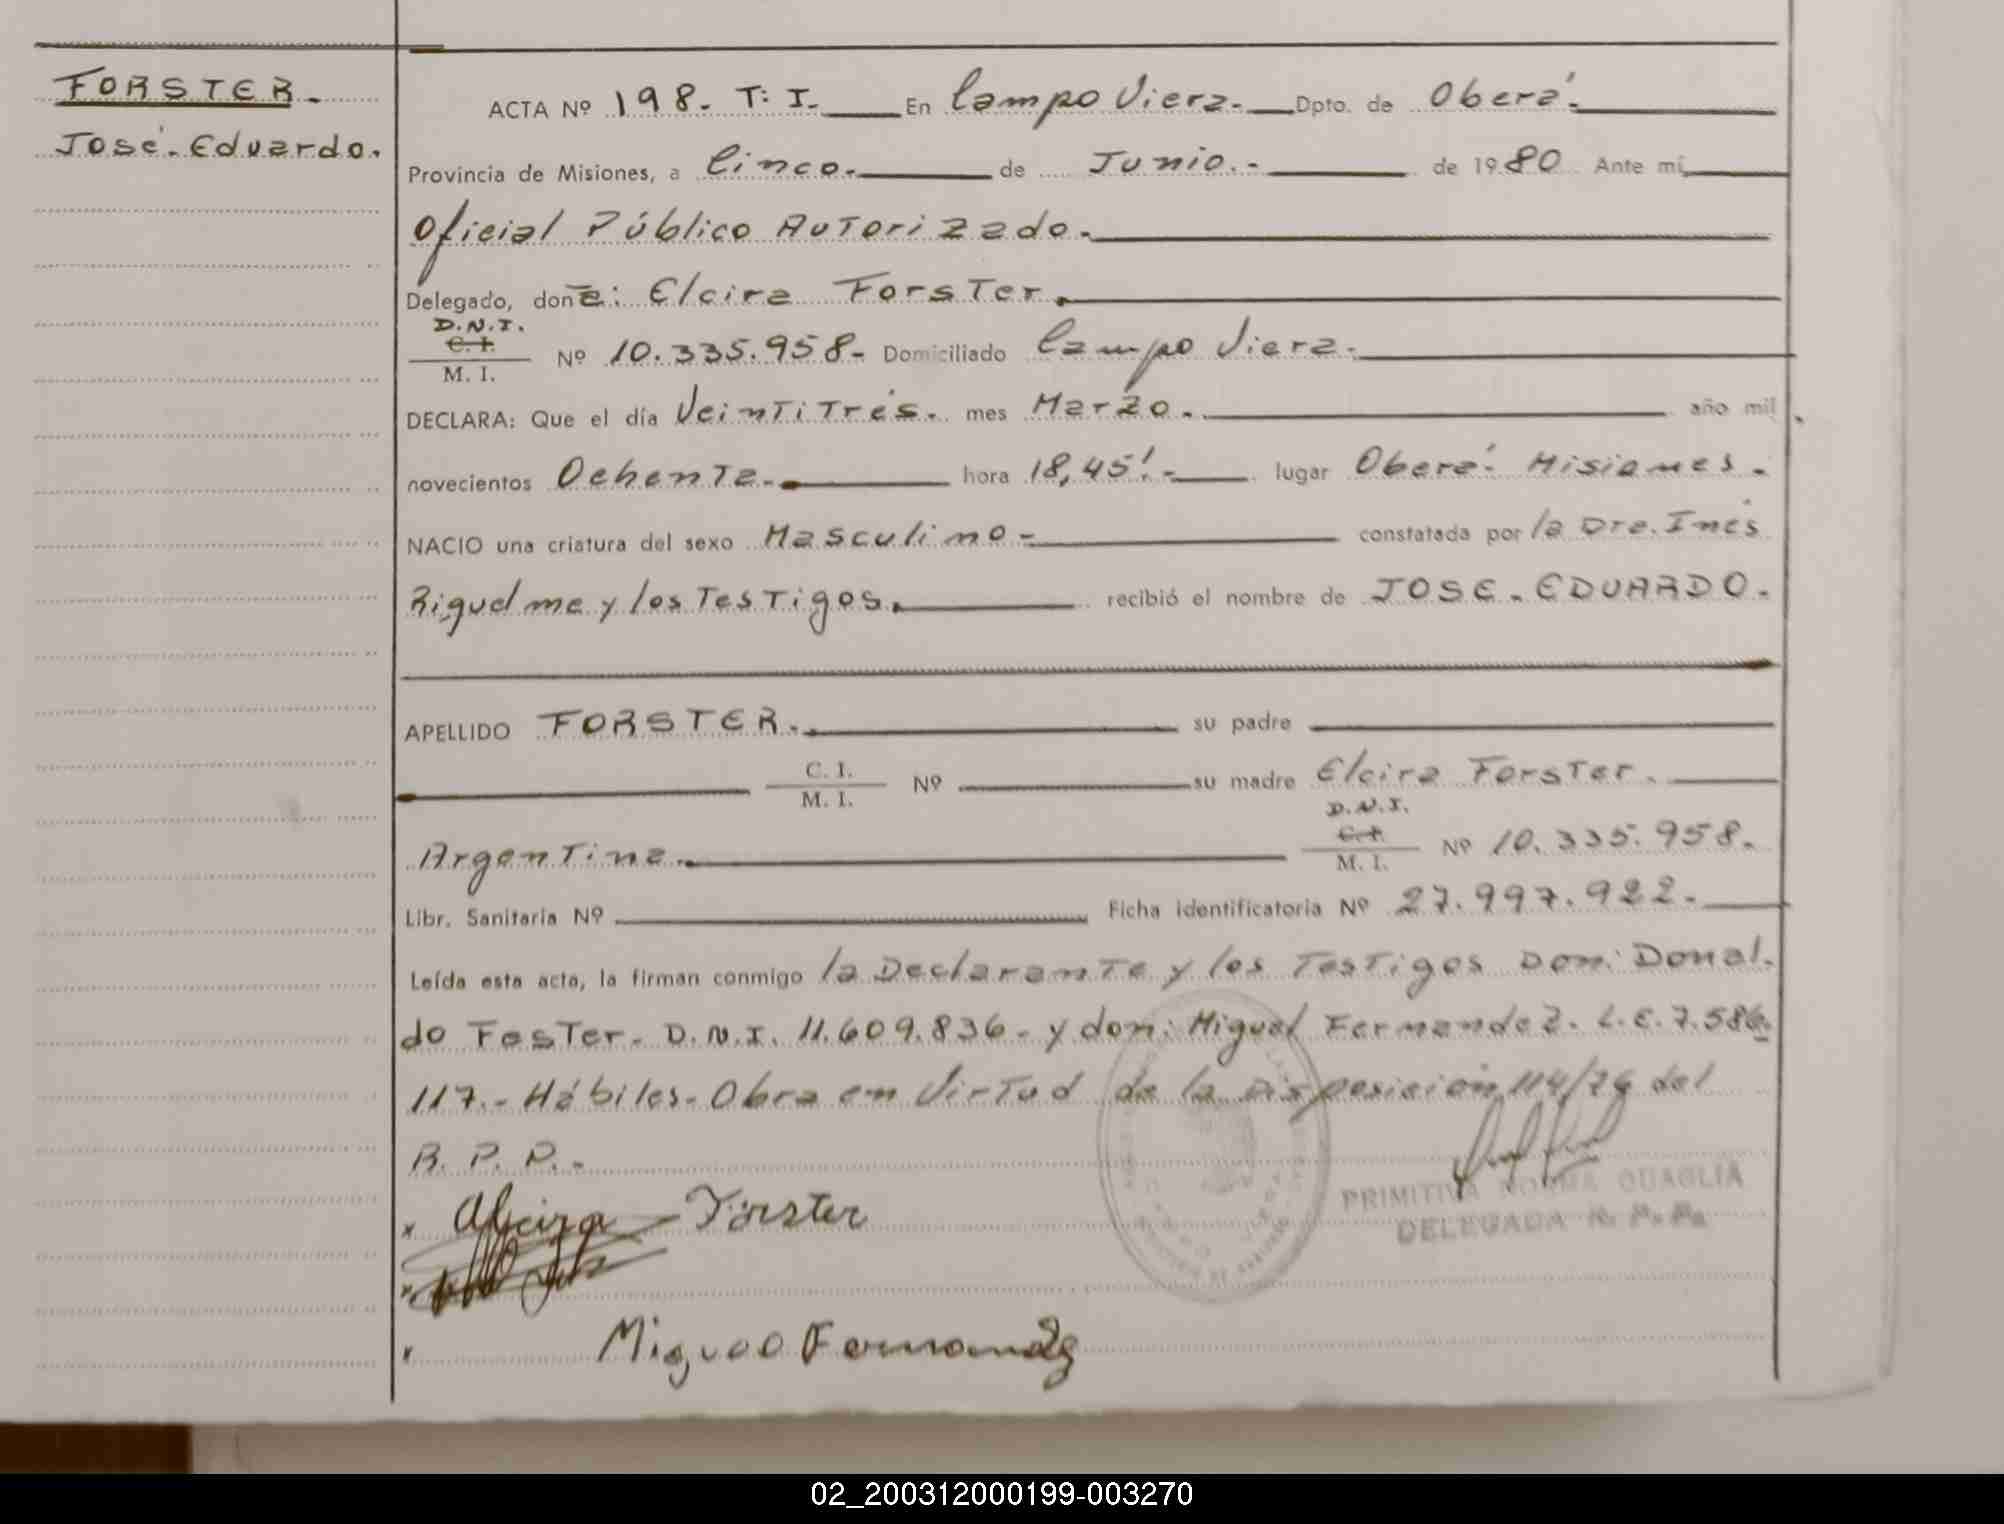 FORSTER.
José. Eduardo.
ACTA Nº 198. T: I. En Campo Viera. Dpto. de Oberá.
Provincia de Misiones, a Cinco. de Junio.- de 1980 Ante mí
Oficial Público Autorizado.
Delegado, dona: Elcira Forster.
D.N.I.
C. I.
M. I. Nº 10.335.958- Domiciliado Campo Viera.
DECLARA: Que el día Veintitrés. mes Marzo. año mil
novecientos Ochenta. hora 18,45'.- lugar Oberá. Misiones.
NACIO una criatura del sexo Masculino- constatada por la Dra. Inés
Riquelme y los Testigos. recibió el nombre de JOSE. EDUARDO.
APELLIDO FORSTER. su padre
C. I.
M. I. Nº su madre Elcira Forster.
D.N.I.
C. I.
Argentina. M. I. Nº 10.335.958.
Libr. Sanitaria Nº Ficha identificatoria Nº 27.997.922.
Leída esta acta, la firman conmigo la Declarante y los Testigos Don: Donal.
do Fester. D.N.I. 11.609.836- y don: Miguel Fernandez. L.E. 7.586.
117.- Hábiles- Obra en Virtud de la Disposición 114/76 del
R. P. P.-
x Alcira Förster
x
x Miguel Fernandez
PRIMITIVA NORMA QUAGLIA
DELEGADA R. P. Ps.
02_200312000199-003270